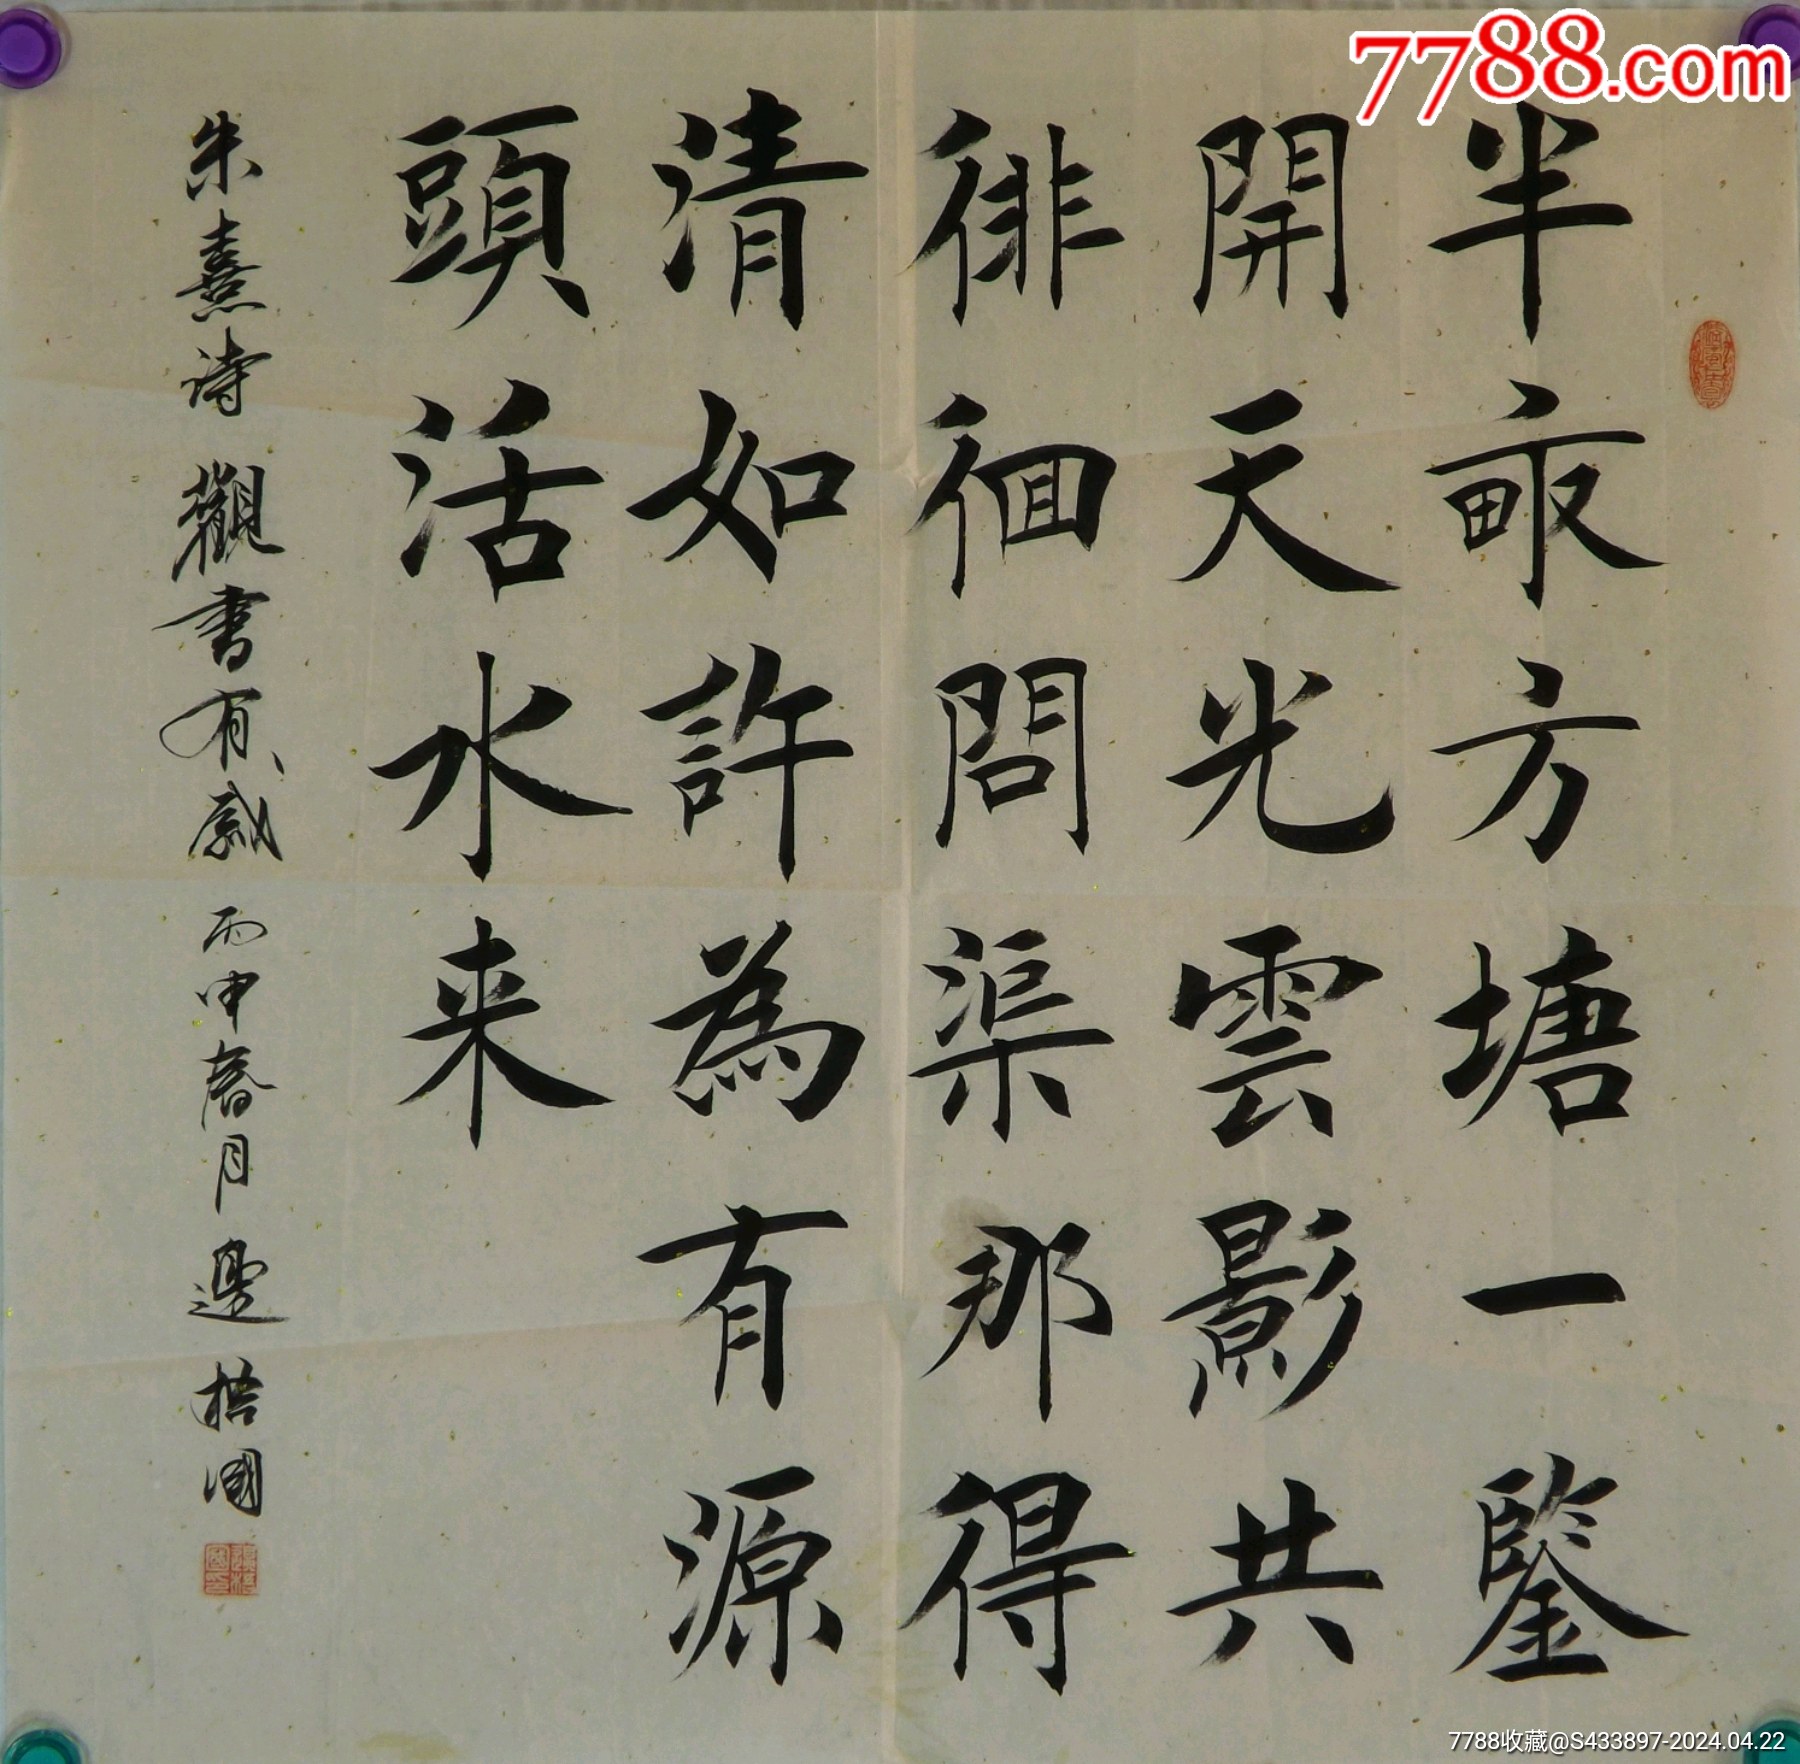 7788.com
半畝方塘一鑒
開天光雲影共
徘徊問渠那得
清如許為有源
頭活水来
朱熹诗 觀書有感 丙申春月 邊梧國
7788收藏@S433897-2024.04.22